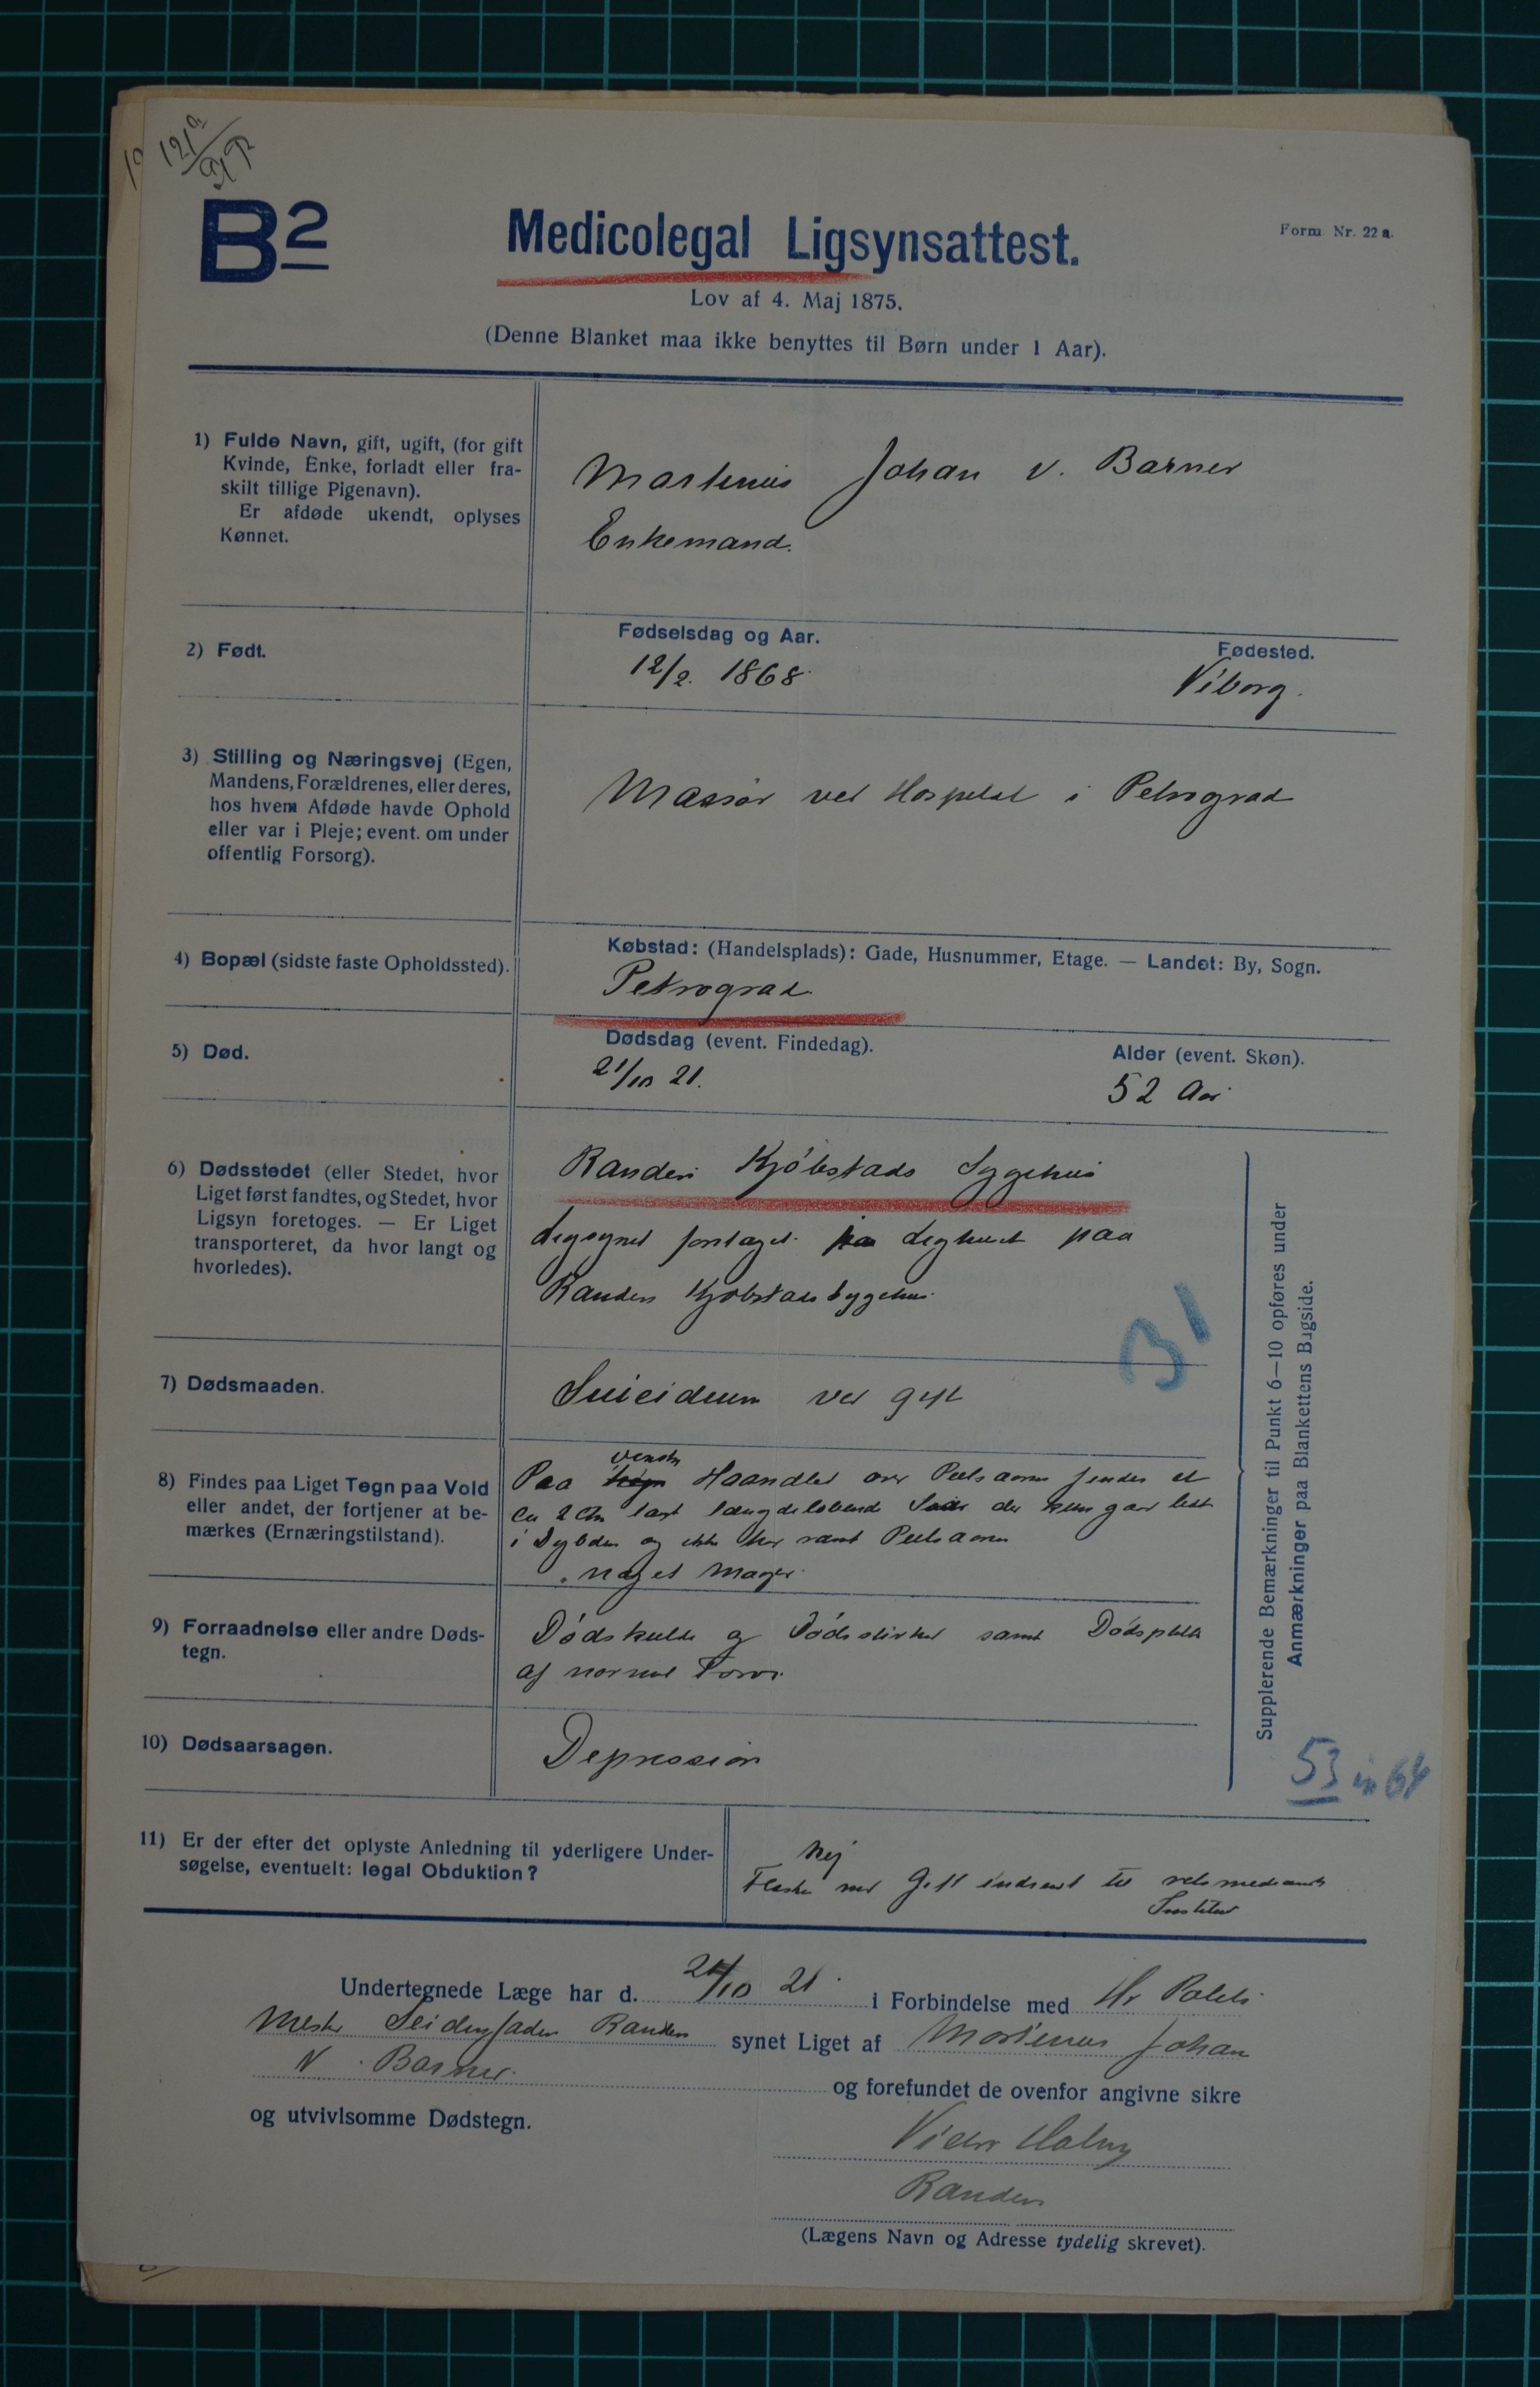 121a
B2
Medicolegal Ligsynsattest.
Form. Nr. 22 a.
Lov af 4. Maj 1875.
(Denne Blanket maa ikke benyttes til Børn under 1 Aar).
1) Fulde Navn, gift, ugift, (for gift
Kvinde, Enke, forladt eller fra-
skilt tillige Pigenavn).
Er afdøde ukendt, oplyses
Kønnet.
Martenius Johan v. Barner
Enkemand.
2) Født.
Fødselsdag og Aar.
12/2. 1868.
Fødested.
Viborg.
3) Stilling og Næringsvej (Egen,
Mandens, Forældrenes, eller deres,
hos hvem Afdøde havde Ophold
eller var i Pleje; event. om under
offentlig Forsorg).
Massør ved Hospital i Petrograd
4) Bopæl (sidste faste Opholdssted).
Købstad: (Handelsplads): Gade, Husnummer, Etage. — Landet: By, Sogn.
Petrograd
5) Død.
Dødsdag (event. Findedag).
21/10 21.
Alder (event. Skøn).
52 Aar
6) Dødsstedet (eller Stedet, hvor
Liget først fandtes, og Stedet, hvor
Ligsyn foretoges. — Er Liget
transporteret, da hvor langt og
hvorledes).
Randers Kjøbstads Sygehus
Ligsynet foretaget paa Lighuset paa
Randers Kjøbstads Sygehus.
B1
7) Dødsmaaden.
Suicidium ved gift
8) Findes paa Liget Tegn paa Vold
eller andet, der fortjener at be-
mærkes (Ernæringstilstand).
venstre
Paa Haandled over Pulsaaren findes et
ca 2 Cm langt længdeløbende Saar der kun gaar lidt
i Dybden og ikke har ramt Pulsaaren
noget mager.
9) Forraadnelse eller andre Døds-
tegn.
Dødskulde og Dødsstivhed samt Dødspletter
af normal Farve.
10) Dødsaarsagen.
Depression
Supplerende Bemærkninger til Punkt 6—10 opføres under
Anmærkninger paa Blankettens Bagside.
53 m 64
11) Er der efter det oplyste Anledning til yderligere Under-
søgelse, eventuelt: legal Obduktion?
Nej
Flaske med Gift indsendt til retsmedicinsk
Institut
Undertegnede Læge har d. 21/10 21. i Forbindelse med Hr Politi
mester Seidenfaden Randers synet Liget af Martenius Johan
v. Barner. og forefundet de ovenfor angivne sikre
og utvivlsomme Dødstegn.
Randers
(Lægens Navn og Adresse tydelig skrevet).